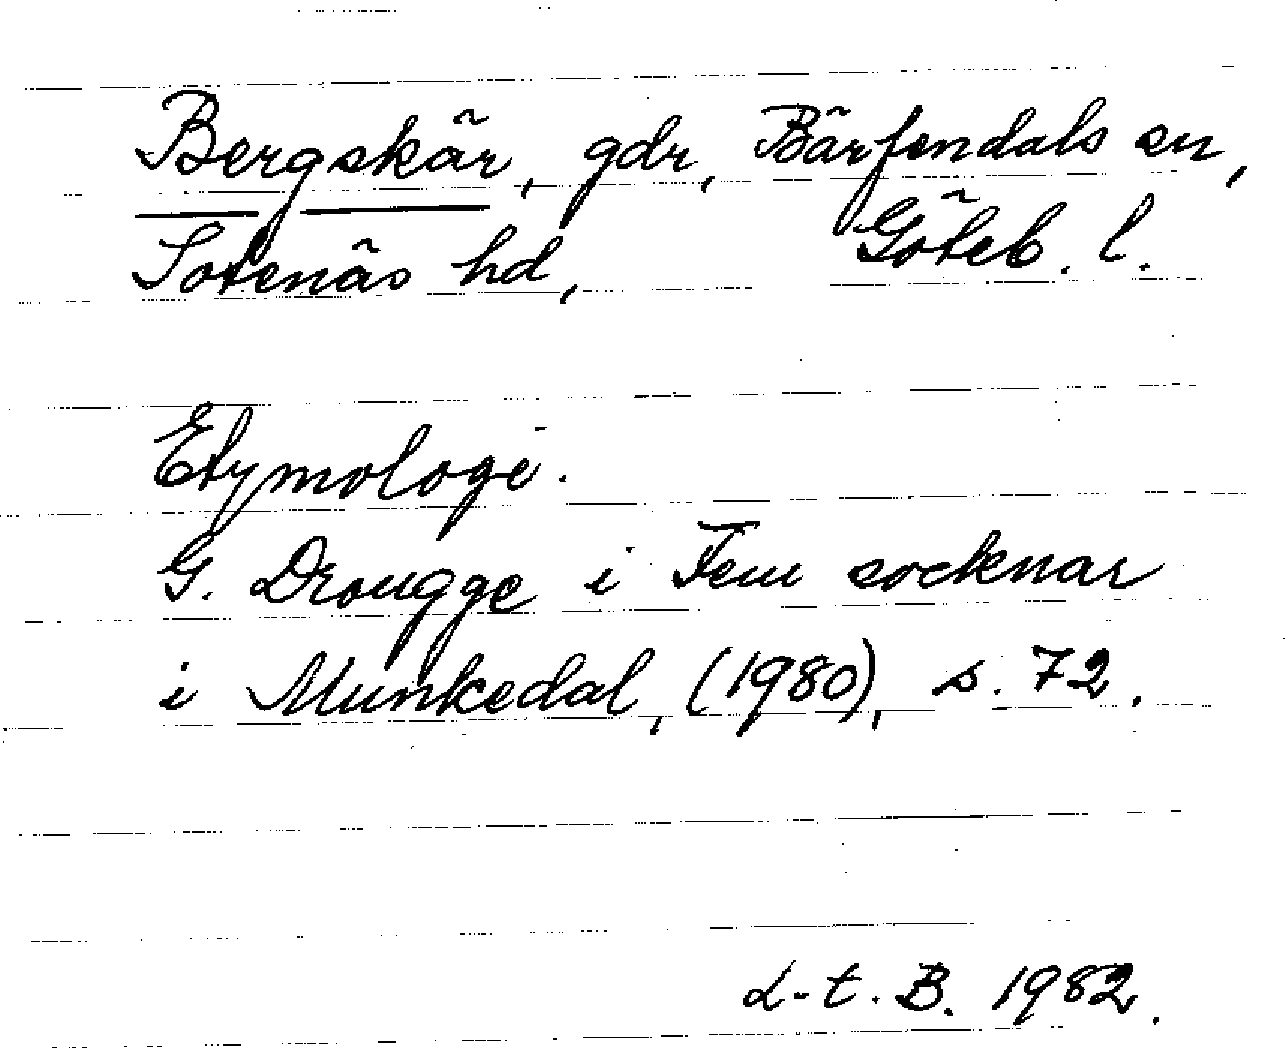 Bergskär, gdr, Bärfendals sn,
Sotenäs hd, Göteb. l.
Etymologi.
G. Drougge i Fem socknar
i Munkedal, (1980), s. 72.
L-t. B. 1982.